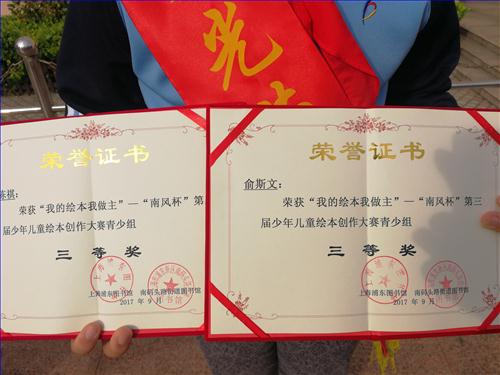 光
荣誉证书
陈祺：
荣获“我的绘本我做主”—“南风杯”第
届少年儿童绘本创作大赛青少组
三等奖
上海浦东图书馆 南码头路街道图书馆
2017 年 9 月
荣誉证书
俞斯文：
荣获“我的绘本我做主”—“南风杯”第三
届少年儿童绘本创作大赛青少组
三等奖
上海浦东图书馆 南码头路街道图书馆
2017 年 9 月